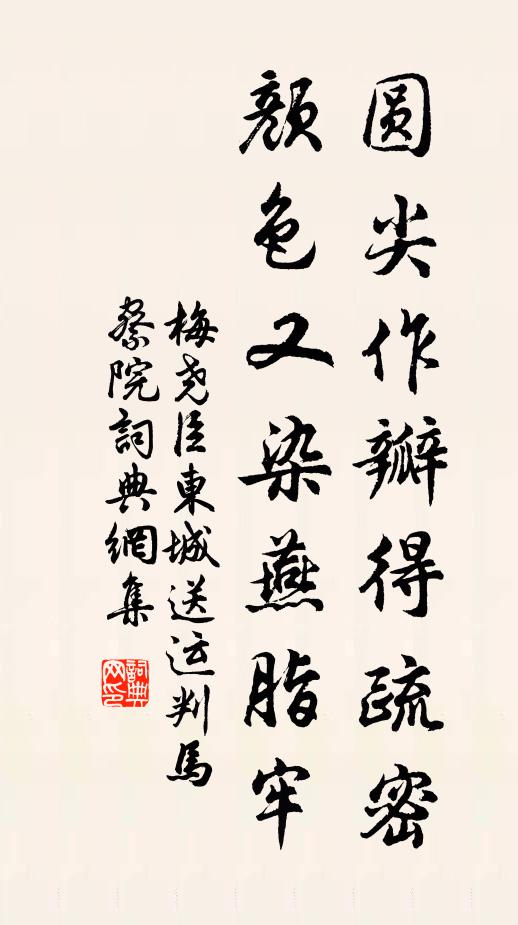 圆尖作瓣得疏密
颜色又染燕脂牢
梅尧臣東城送运判馬
察院詞典網集
詞典网印